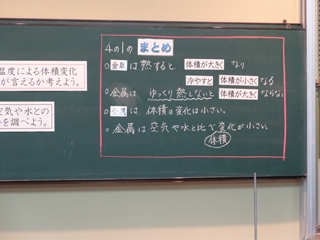 温度による体積変化
が言えるか考えよう。
空気や水との
を調べよう。
4の1の まとめ
○金属は熱すると、体積が大きくなり
冷やすと 体積が小さくなる
○金属は、ゆっくり熱しないと 体積が大きくならない
○金属は、体積の変化は小さい。
○金属は空気や水と比べ変化が小さい
体積